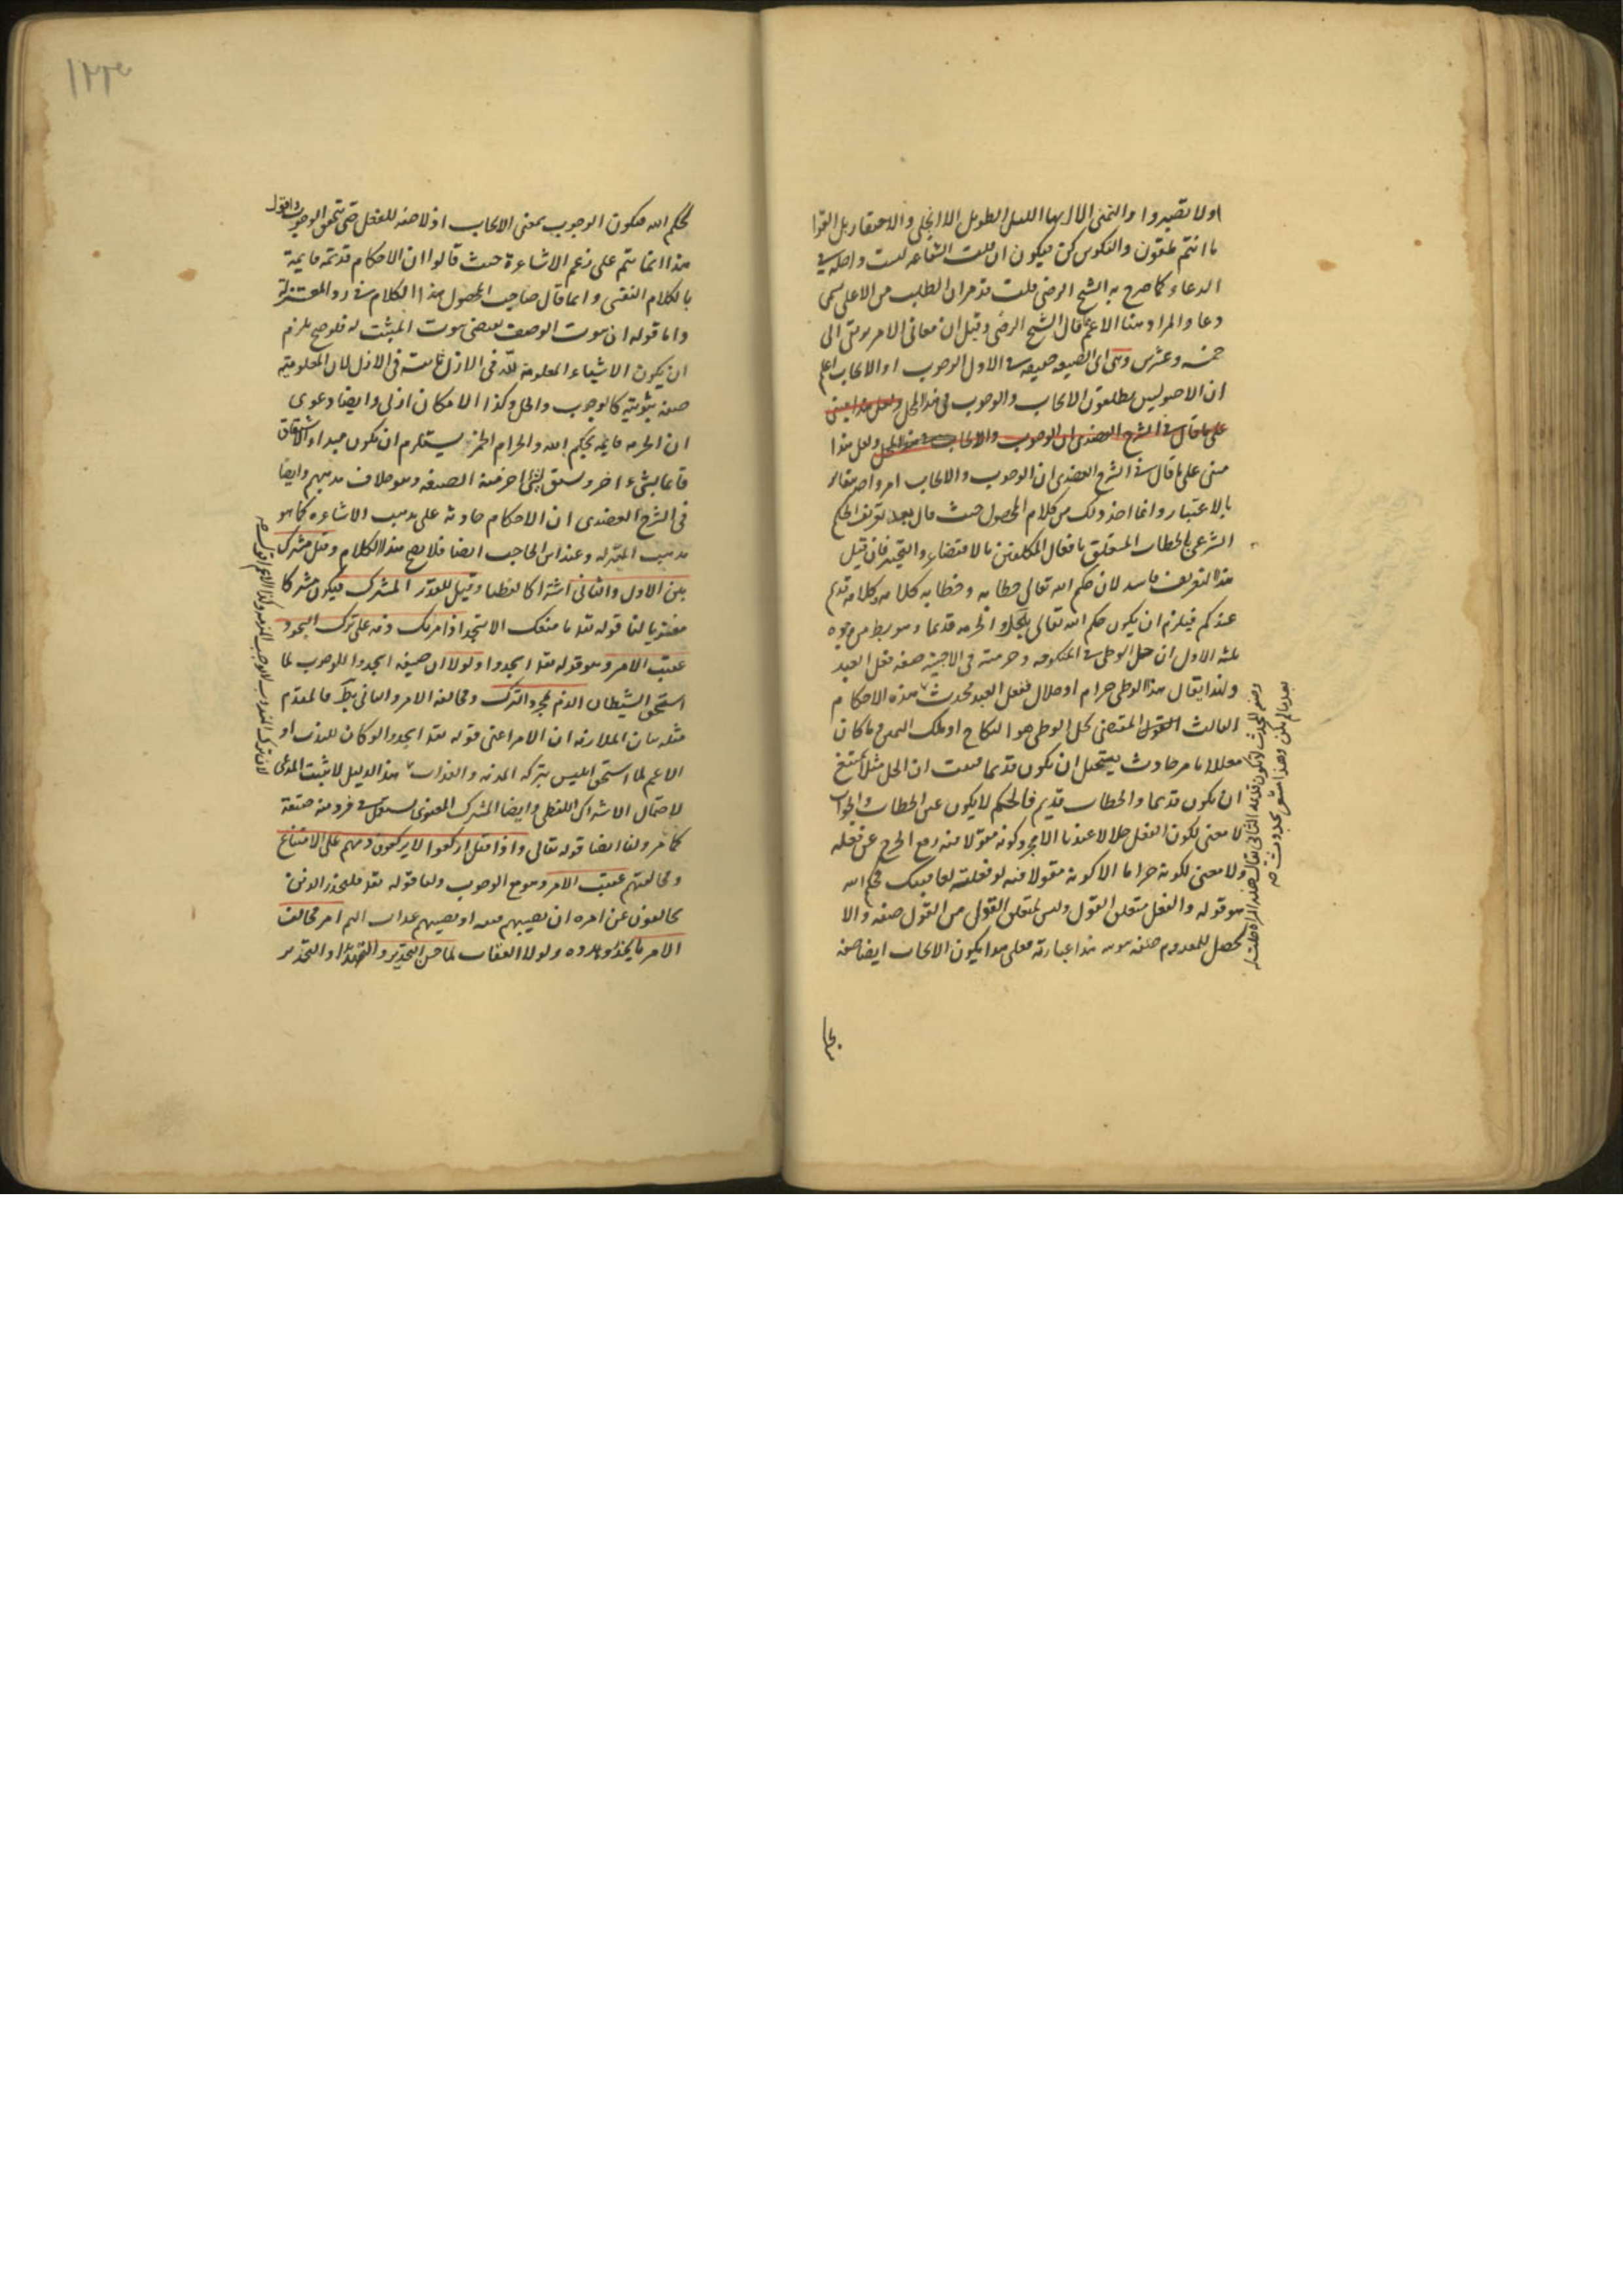 اولا تصبروا والتمنی الا ایها اللیل الطویل الا انجلی والاحتقار بل القوا
ما انتم ملقون والتکوین کن فیکون ان قلت الشفاعه لیست داخله فی
الدعاء کما صرح به الشیخ الرضی قلت قد مر ان الطلب من الاعلی یسمی
دعا والمراد هنا الاعم قال الشیخ الرضی وقیل ان معانی الامر یرتقی الی
خمسه وعشرین وهی ای الصیغه حقیقه فی الاول الوجوب او الایجاب اعلم
ان الاصولیین یطلقون الایجاب والوجوب فی هذا المحل ولعل هذا مبنی
علی ما قال فی الشرح العضدی ان الوجوب والایجاب فی هذا المحل ولعل هذا
مبنی علی ما قال فی الشرح العضدی ان الوجوب والایجاب امر واحد متغایر
بالاعتبار وانما اخذ ذلک من کلام المحصول حیث قال بعد تعریف الحکم
الشرعی بالخطاب المتعلق بافعال المکلفین بالاقتضاء والتخییر فان قیل
هذا التعریف فاسد لان حکم الله تعالی خطابه وخطابه کلامه وکلامه قدیم
عندکم فیلزم ان یکون حکم الله تعالی بالحل والحرمه قدیما وهو باطل من وجوه
ثلثه الاول ان حل الوطی فی المنکوحه وحرمته فی الاجنبیه صفه فعل العبد
ولهذا یقال هذا الوطی حرام او حلال ففعل العبد محدث هذه الاحکام
الثالث القول المقتضی لحل الوطی هو النکاح او ملک الیمین وما کان
معللا بامر حادث یستحیل ان یکون قدیما فثبت ان الحل مثلا یمتنع
ان یکون قدیما والخطاب قدیم فالحکم لا یکون عین الخطاب والجواب
لا معنی لکون الفعل حلالا عندنا الا مجرد کونه مقولا فیه رفع الحرج عن فعله
ولا معنی لکونه حراما الا کونه مقولا فیه لو فعلته لعاقبتک فحکم الله
هو قوله والفعل متعلق القول ولیس لمتعلق القول من القول صفه والا
لحصل للمعدوم صفه ثبوتیه هذا عبارته فعلی هذا یکون الایجاب ایضا صفه
بحکم
لحکم الله فیکون الوجوب بمعنی الایجاب اذ لا صفه للفعل حتی یتحقق الوجوب واقول
هذا انما یتم علی زعم الاشاعرة حیث قالوا ان الاحکام قدیمه قایمة
بالکلام النفسی وانما قال صاحب المحصول هذا الکلام فی رد المعتزلة
واما قوله ان ثبوت الوصف یقتضی ثبوت المثبت له فلو صح یلزم
ان یکون الاشیاء المعلومه لله فی الازل ثابتة فی الازل لان المعلومیه
صفه ثبوتیه کالوجوب والحل وکذا الامکان ازلی وایضا دعوی
ان الحرمه قایمه بحکم الله والحرام الخمر یستلزم ان یکون مبداء الاشتقاق
قائما بشیء اخر وسبق لشیء اخر منه الصیغه وهو خلاف مذهبهم وایضا
فی الشرح العضدی ان الاحکام حادثه علی مذهب الاشاعره کما هو
مذهب المعتزله وعند ابن الحاجب ایضا فلا یصح هذا الکلام وقیل مشترک
بین الاول والثانی اشتراکا لفظیا وقیل للقدر المشترک فیکون مشترکا
معنویا لنا قوله تعا ما منعک الا تسجد اذ امرتک ذمه علی ترک السجود
عقیب الامر وهو قوله تعا اسجدوا ولولا ان صیغه اسجدوا للوجوب لما
استحق الشیطان الذم لمجرد الترک ومخالفه الامر والثانی بط فالمقدم
مثله بیان الملازمه ان الامر اعنی قوله تعا اسجدوا لو کان للندب او
الاعم لما استحق ابلیس بترکه المذمه والعذاب هذا الدلیل لا یثبت المدعی
لاحتمال الاشتراک اللفظی وایضا المشترک المعنوی یستعمل فی فرد منه حقیقة
کما مر ولنا ایضا قوله تعالی واذا قیل ارکعوا لا یرکعون ذمهم علی الامتناع
ومخالفتهم عقیب الامر وهو مع الوجوب ولنا قوله تعا فلیحذر الذین
یخالفون عن امره ان تصیبهم فتنه او یصیبهم عذاب الیم امر مخالف
الامر بالحذر وهدده ولولا العقاب لما حسن التحذیر والتهدید او التحذیر